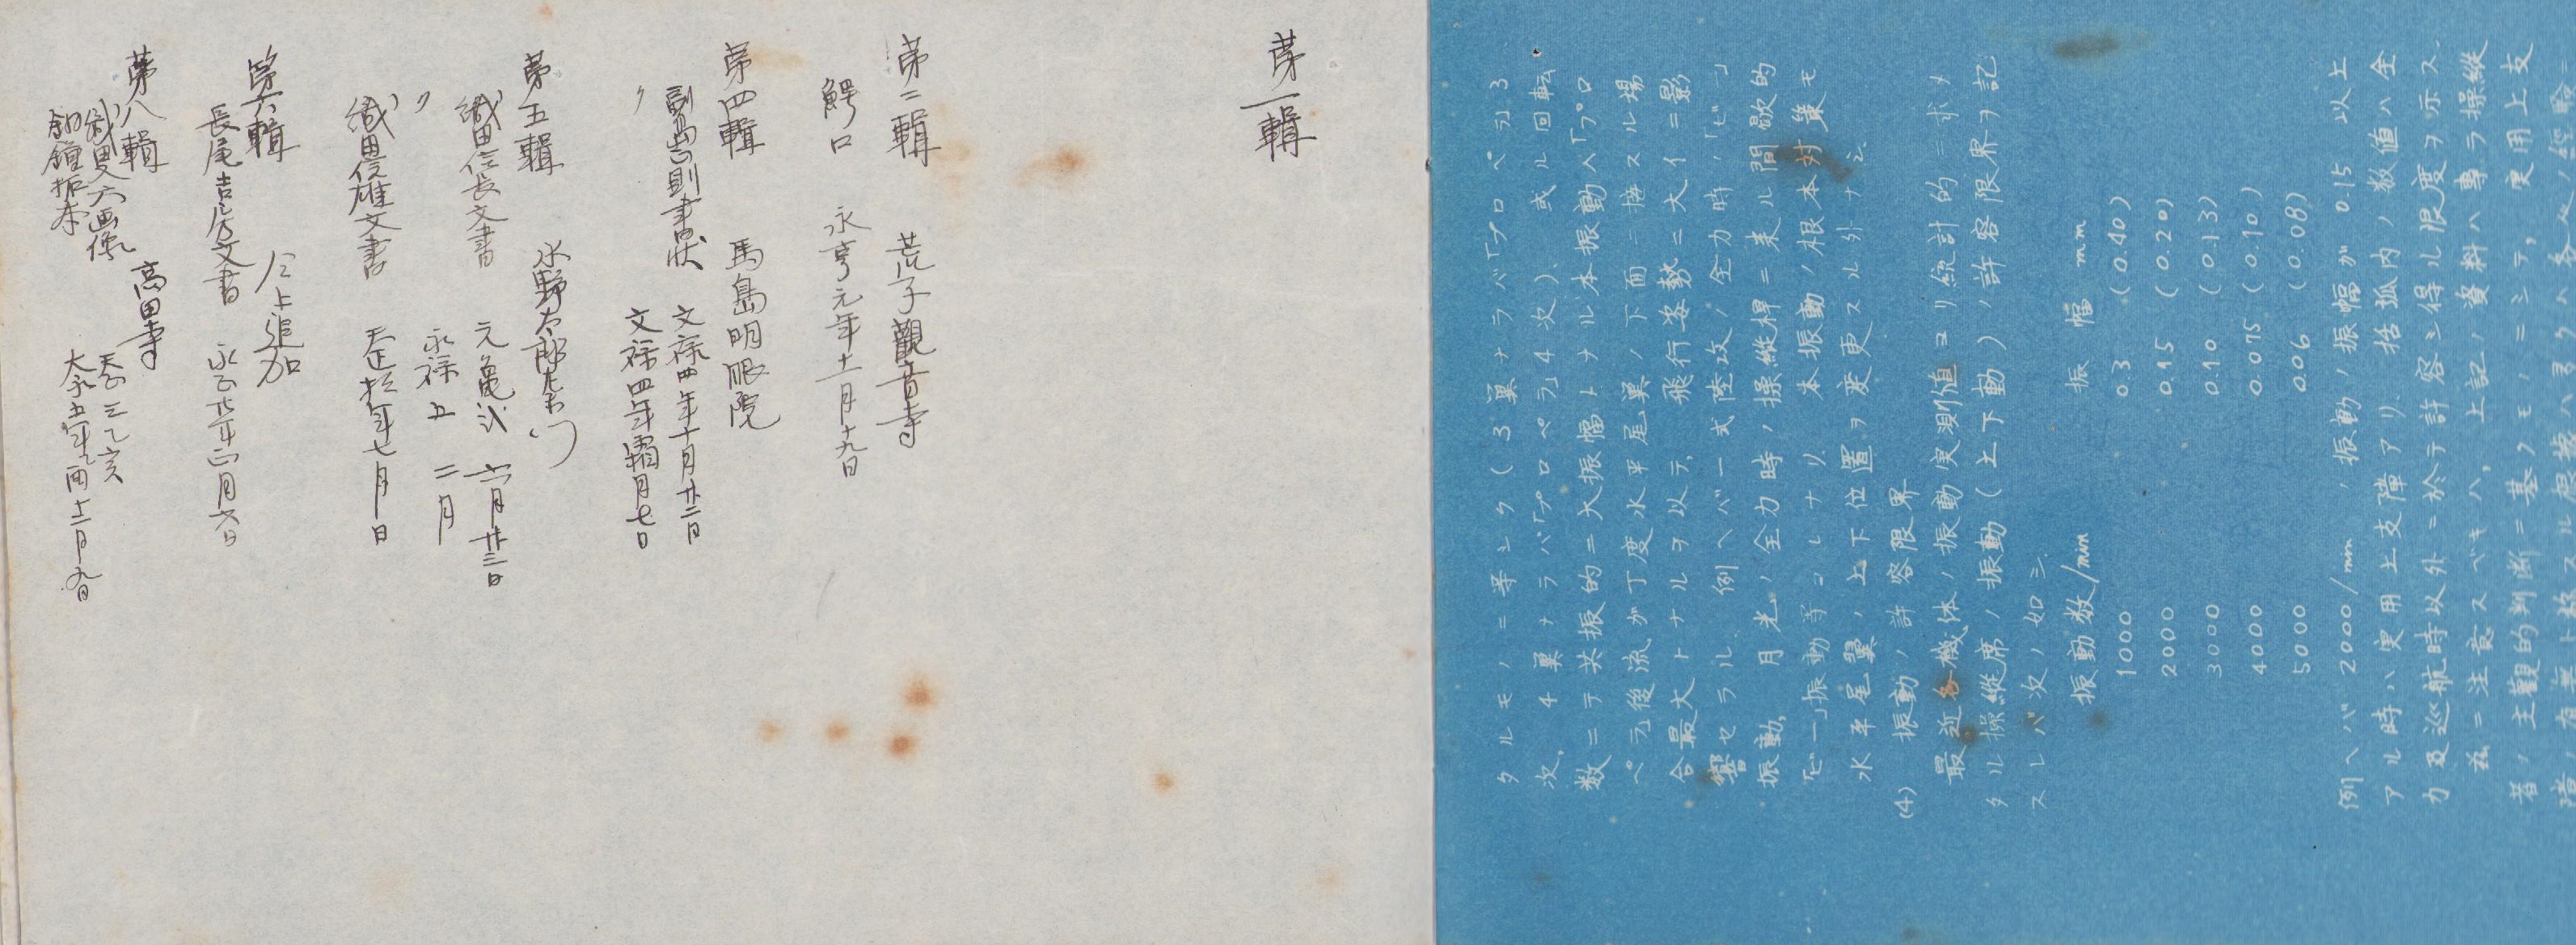 第一輯
第二輯 荒子觀音寺
鰐口 永享元年十一月十九日
第四輯 馬島明眼院
副島吉則書状 文禄四年十月廿二日
〃 文禄四年霜月七日
第五輯 水野太郎左衛門
織田信長文書 元亀弐 六月廿三日
〃 永禄五 二月
織田信雄文書 天正拾年七月 日
第六輯 仝上追加
長尾吉房文書
第八輯 高田寺
画像 天正三乙亥
大永五年乙酉十二月九日
タルモノニ等シク(3翼ナラバ「プロペラ」3
次,4翼ナラバ「プロペラ」4次)、或ル回転
数ニテ共振的ニ大振幅トナル本振動ハ「プロ
ペラ」後流ガ丁度水平尾翼ノ下面ニ接スル場
合最大トナルヲ以テ,飛行姿勢ニ大イニ影
響セラル. 例ヘバ一式陸攻ノ全力時ノ「ビー」
振動,月光ノ全力時ノ操縦桿ニ来ル間歇的
「ビー」振動等コレナリ. 本振動ノ根本対策モ
水平尾翼ノ上下位置ヲ変更スル外ナシ.
(4) 振動ノ許容限界
最近各機体ノ振動実測値ヨリ統計的ニ求メ
タル操縦席ノ振動(上下動)ノ許容限界ヲ記
スレバ次ノ如シ.
振動数/mm 振幅 mm
1000 0.3 (0.40)
2000 0.15 (0.20)
3000 0.10 (0.13)
4000 0.075 (0.10)
5000 0.06 (0.08)
例ヘバ 2000/mm ノ振動ノ振幅ガ 0.15 以上
アル時ハ実用上支障アリ. 括弧内ノ数値ハ全
力及巡航時以外ニ於テ許容シ得ル限度ヲ示ス.
茲ニ注意スベキハ,上記ノ資料ハ専ラ操縦
者ノ主観的判断ニ基クモノニシテ,実用上支